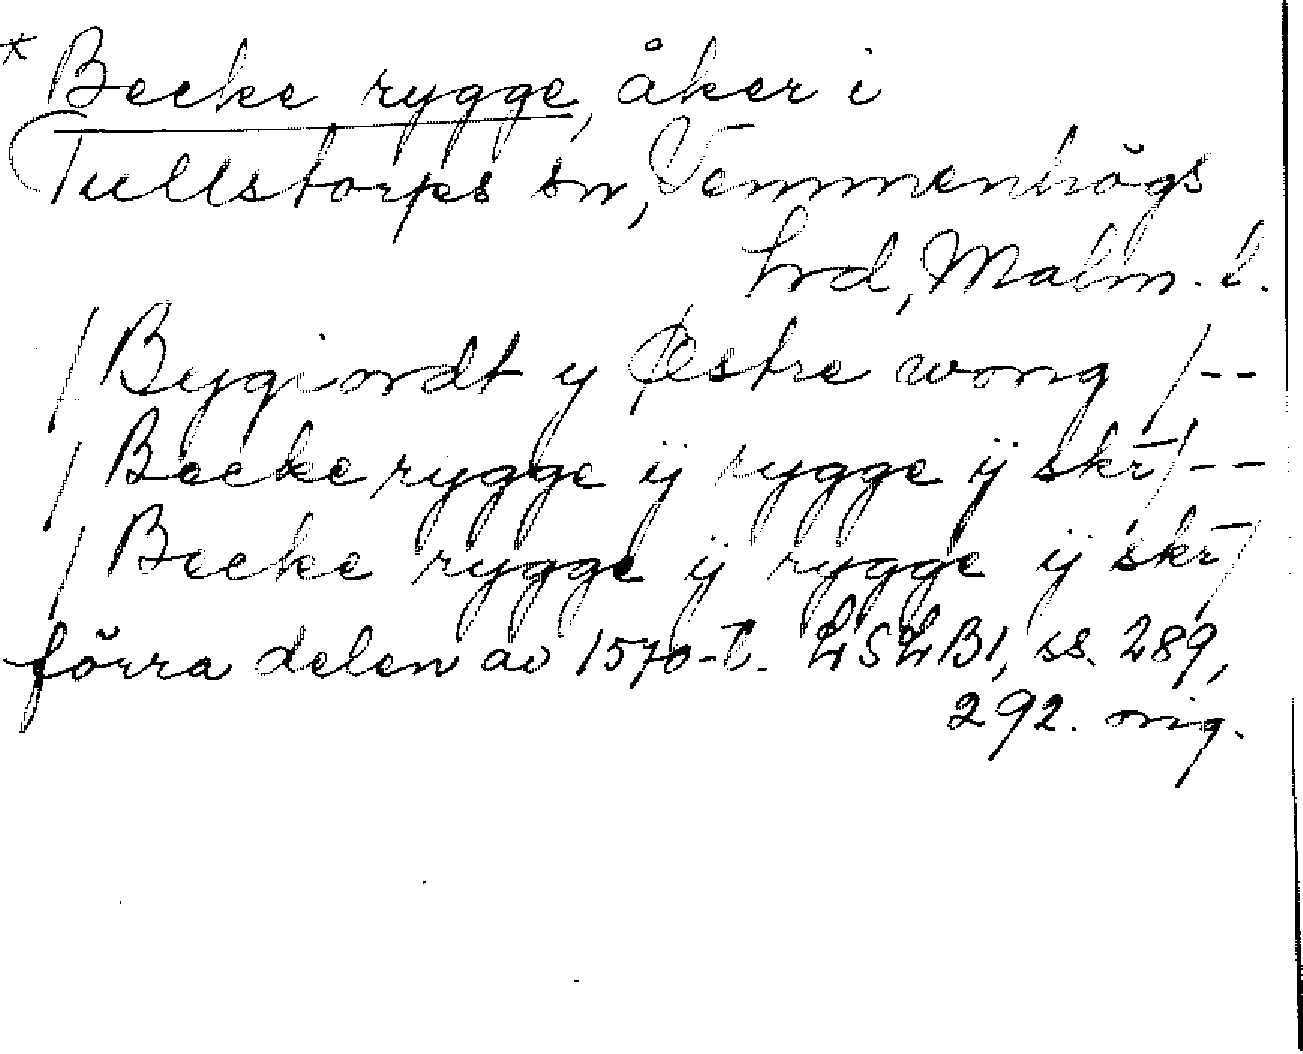 * Becke rygge, åker i
Tullstorps sn, Vemmenhögs
hrd, Malm. l.
/ Bygiordt y Østre wong /--
/ Becke rygge ij rygge ij skr̄ /--
/ Becke rygge ij rygge ij skr̄ /
förra delen av 1570-t. LSLB1, ss. 289,
292. orig.